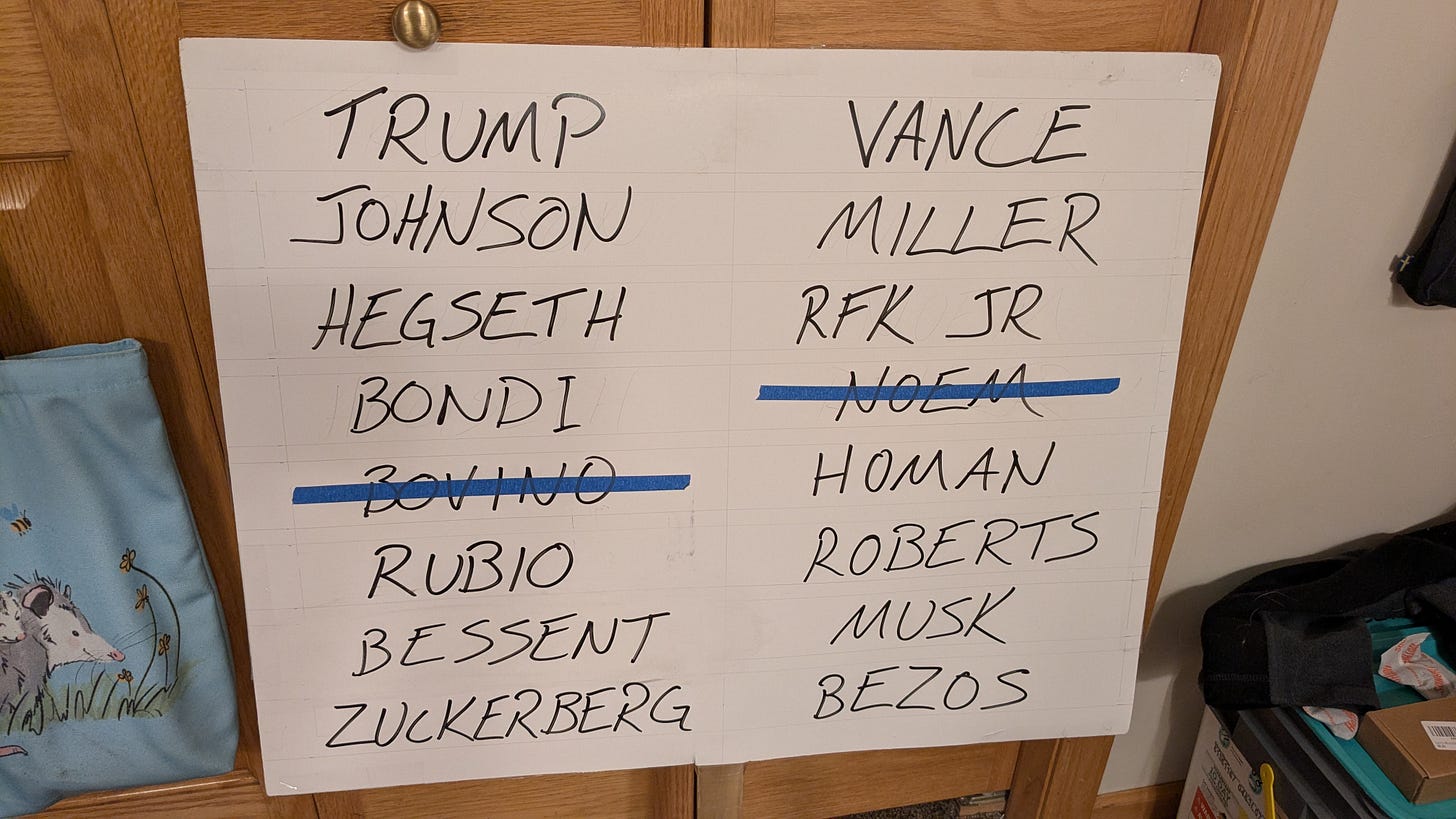 TRUMP
VANCE
JOHNSON
MILLER
HEGSETH
RFK JR
BONDI
NOEM
BOVINO
HOMAN
RUBIO
ROBERTS
BESSENT
MUSK
ZUCKERBERG
BEZOS